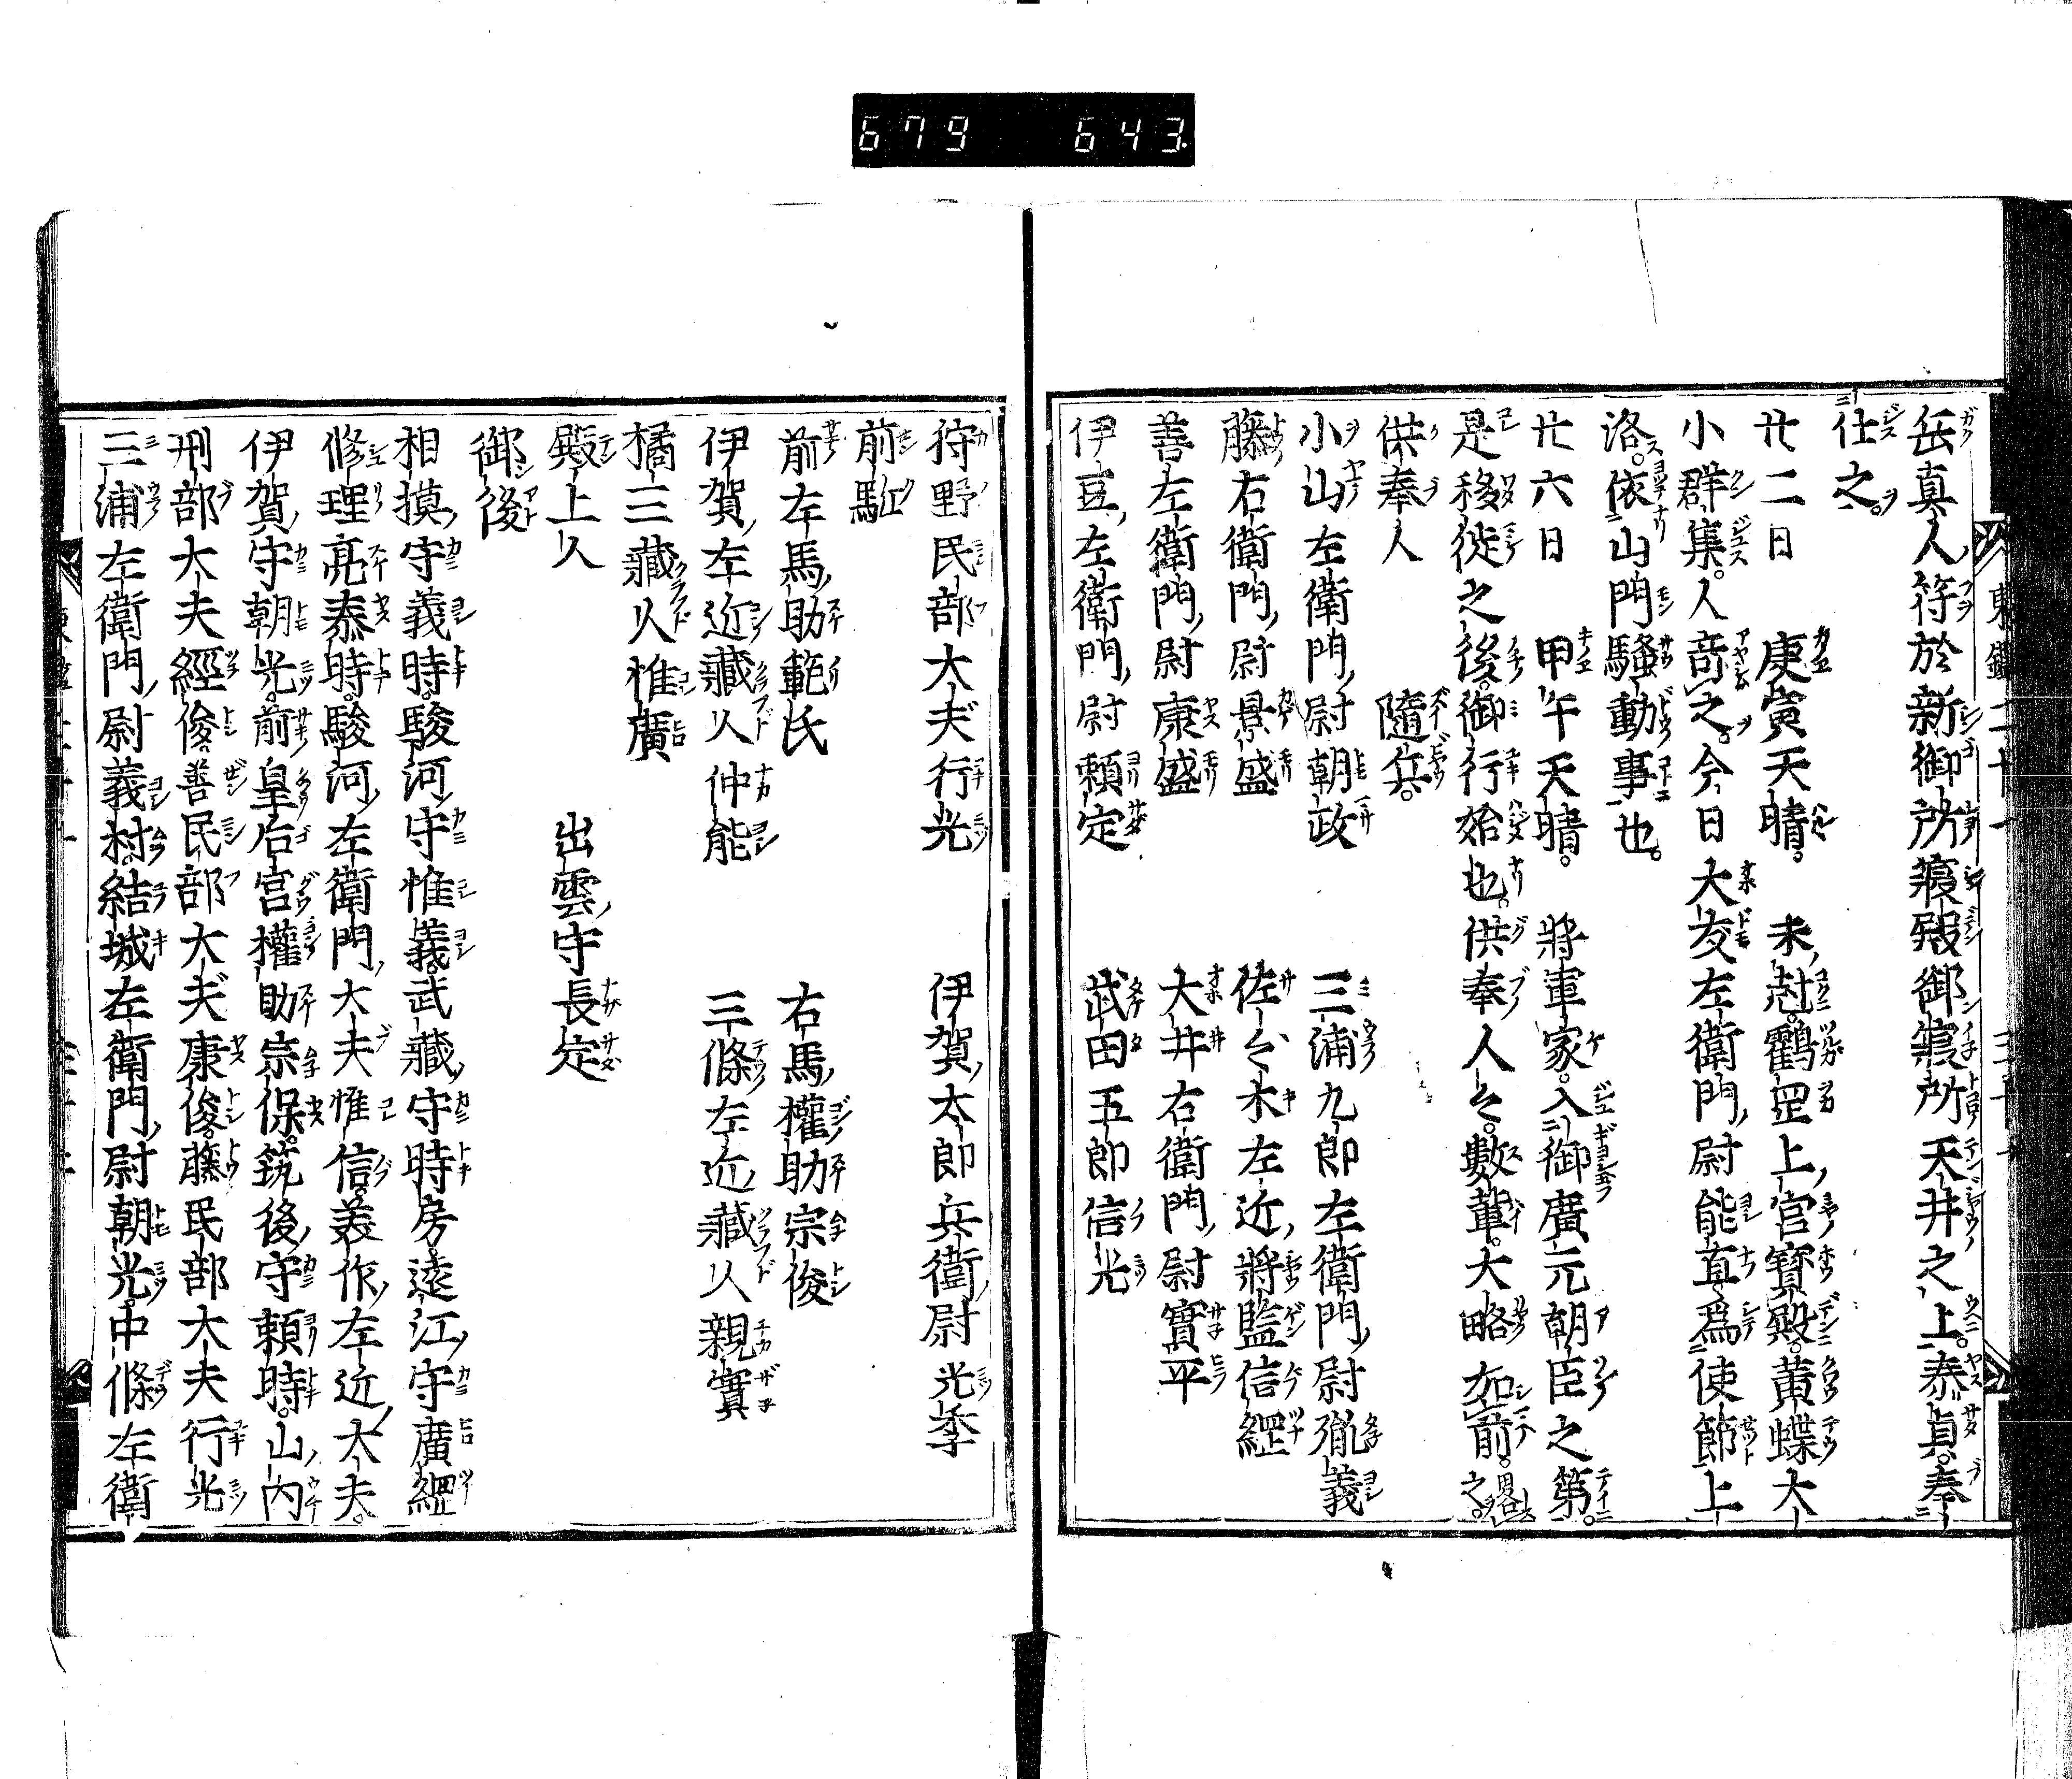 679 643
岳真人符於新御所寢殿御寢所天井之上。泰貞。奉
仕之。
廿二日 庚寅天晴。 未尅。鸛罡上宮寶殿。黄蝶大
小群集。人竒之。今日大友左衛門尉能直。爲使節上
洛。依山門騷動事也。
廿六日 甲午天晴。 將軍家。入御廣元朝臣之第。
是移徙之後。御行始也。供奉人々。數輩。大略如前。
供奉人 隨兵。
小山左衛門尉朝政 三浦九郎左衛門尉胤義
藤右衛門尉景盛 佐々木左近將監信綱
善左衛門尉康盛 大井右衛門尉實平
伊豆左衛門尉頼定 武田五郎信光
狩野民部大夫行光 伊賀太郎兵衛尉光季
前駈
前左馬助範氏 右馬權助宗俊
伊賀左近藏人仲能 三條左近藏人親實
橘三藏人惟廣
殿上人 出雲守長定
御後
相摸守義時。駿河守惟義。武藏守時房。遠江守廣綱
修理亮泰時。駿河左衛門大夫惟信。美作左近大夫。
伊賀守朝光。前皇后宮權助宗保。筑後守頼時。山内
刑部大夫經俊。善民部大夫康俊。藤民部大夫行光
三浦左衛門尉義村。結城左衛門尉朝光。中條左衛